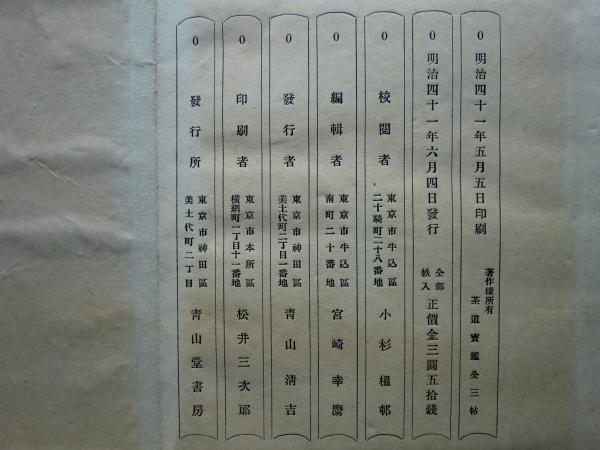 明治四十一年五月五日印刷
著作權所有
茶道寶鑑全三帖
明治四十一年六月四日發行
全部
帙入
正價金三圓五拾錢
校閲者
東京市牛込區
二十騎町二十八番地
小杉榲邨
編輯者
東京市牛込區
南町二十番地
宮崎幸麿
發行者
東京市神田區
美土代町二丁目一番地
青山清吉
印刷者
東京市本所區
横網町一丁目十一番地
松井三次郎
發行所
東京市神田區
美土代町二丁目
青山堂書房